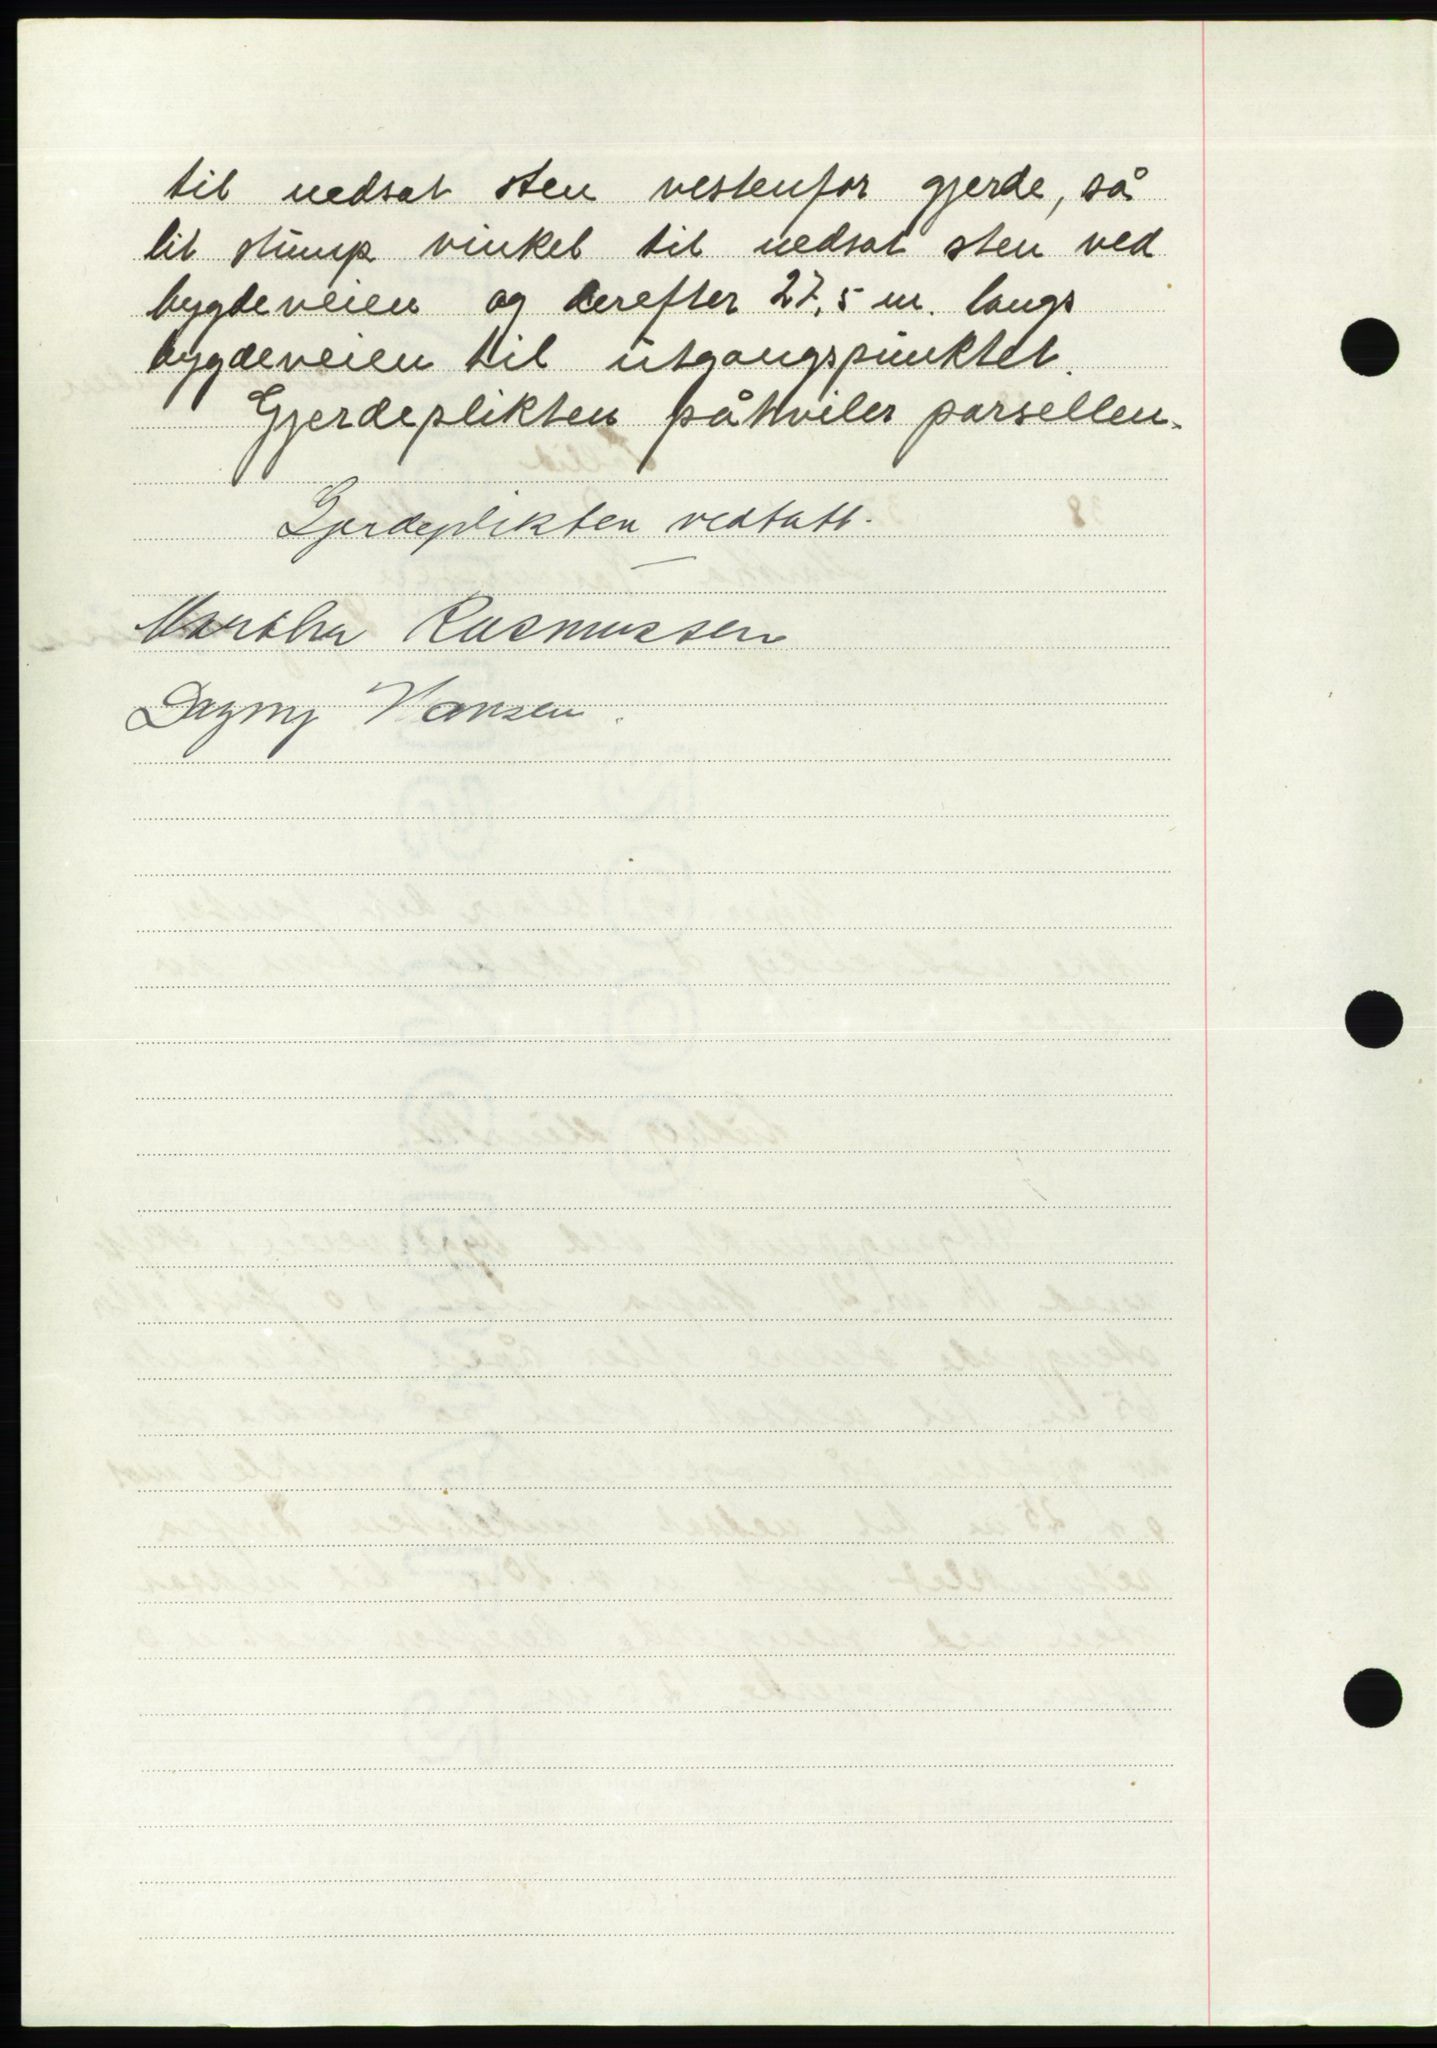 til nedsat sten vestenfor gjerde, så
lit stump vinkel til nedsat sten ved
bygdeveien og derefter 27,5 m. langs
bygdeveien til utgangspunktet.
Gjerdeplikten påhviler parsellen.
Gjerdeplikten vedtatt.
Martha Rasmussen
Dagny Hansen.